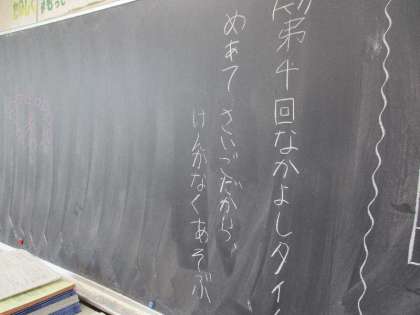 第4回なかよしタイ
めあて さいごだから、
けんかなくあそぶ